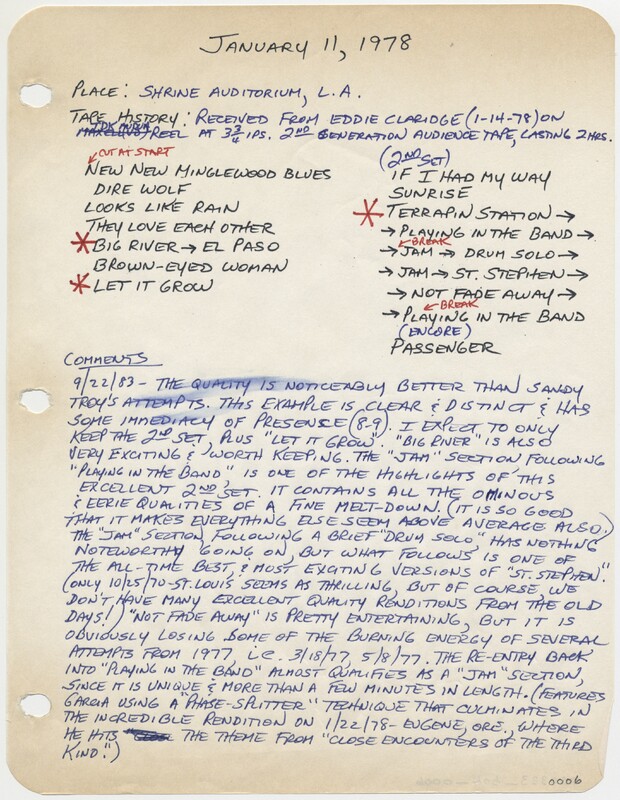 JANUARY 11, 1978
PLACE: SHRINE AUDITORIUM, L.A.
TAPE HISTORY: RECEIVED FROM EDDIE CLARIDGE (1-14-78) ON
TDK AUDUA
MAXELL (UD) REEL AT 3 3/4 IPS. 2ND GENERATION AUDIENCE TAPE, LASTING 2 HRS.
CUT AT START
NEW NEW MINGLEWOOD BLUES
DIRE WOLF
LOOKS LIKE RAIN
THEY LOVE EACH OTHER
* BIG RIVER → EL PASO
BROWN-EYED WOMAN
* LET IT GROW
(2ND SET)
IF I HAD MY WAY
SUNRISE
* TERRAPIN STATION →
→ PLAYING IN THE BAND →
BREAK
→ JAM → DRUM SOLO →
→ JAM → ST. STEPHEN →
→ NOT FADE AWAY →
BREAK
→ PLAYING IN THE BAND
(ENCORE)
PASSENGER
COMMENTS
9/22/83 - THE QUALITY IS NOTICEABLY BETTER THAN SANDY
TROY'S ATTEMPTS. THIS EXAMPLE IS CLEAR & DISTINCT & HAS
SOME IMMEDIACY OF PRESENSE (8-9). I EXPECT TO ONLY
KEEP THE 2ND SET, PLUS "LET IT GROW". "BIG RIVER" IS ALSO
VERY EXCITING & WORTH KEEPING. THE "JAM" SECTION FOLLOWING
"PLAYING IN THE BAND" IS ONE OF THE HIGHLIGHTS OF THIS
EXCELLENT 2ND SET. IT CONTAINS ALL THE OMINOUS
& EERIE QUALITIES OF A FINE MELT-DOWN. (IT IS SO GOOD
THAT IT MAKES EVERYTHING ELSE SEEM ABOVE AVERAGE ALSO.)
THE "JAM" SECTION, FOLLOWING A BRIEF "DRUM SOLO" HAS NOTHING
NOTEWORTHY GOING ON, BUT WHAT FOLLOWS IS ONE OF
THE ALL-TIME BEST, & MOST EXCITING VERSIONS OF "ST. STEPHEN".
(ONLY 10/25/70-ST. LOUIS SEEMS AS THRILLING, BUT OF COURSE, WE
DON'T HAVE MANY EXCELLENT QUALITY RENDITIONS FROM THE OLD
DAYS!) "NOT FADE AWAY" IS PRETTY ENTERTAINING, BUT IT IS
OBVIOUSLY LOSING SOME OF THE BURNING ENERGY OF SEVERAL
ATTEMPTS FROM 1977, i.e. 3/18/77, 5/8/77. THE RE-ENTRY BACK
INTO "PLAYING IN THE BAND" ALMOST QUALIFIES AS A "JAM" SECTION,
SINCE IT IS UNIQUE & MORE THAN A FEW MINUTES IN LENGTH. (FEATURES
GARCIA USING A "PHASE-SPLITTER" TECHNIQUE THAT CULMINATES IN
THE INCREDIBLE RENDITION ON 1/22/78- EUGENE, ORE., WHERE
HE HITS THE THEME FROM "CLOSE ENCOUNTERS OF THE THIRD
KIND".)
0006